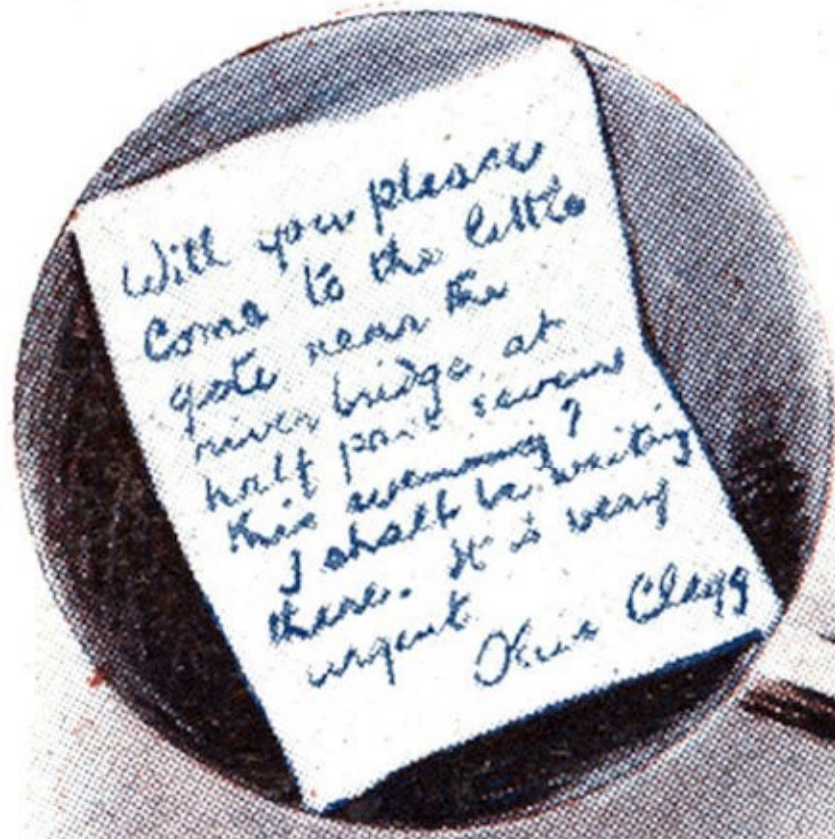 Will you please
come to the little
gate near the
river bridge at
half past seven
this evening?
I shall be waiting
there. It is very
urgent
Olive Clegg